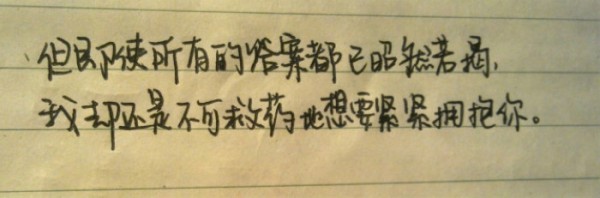 但即使所有的答案都已昭然若揭,
我却还是不可救药地想要紧紧拥抱你。